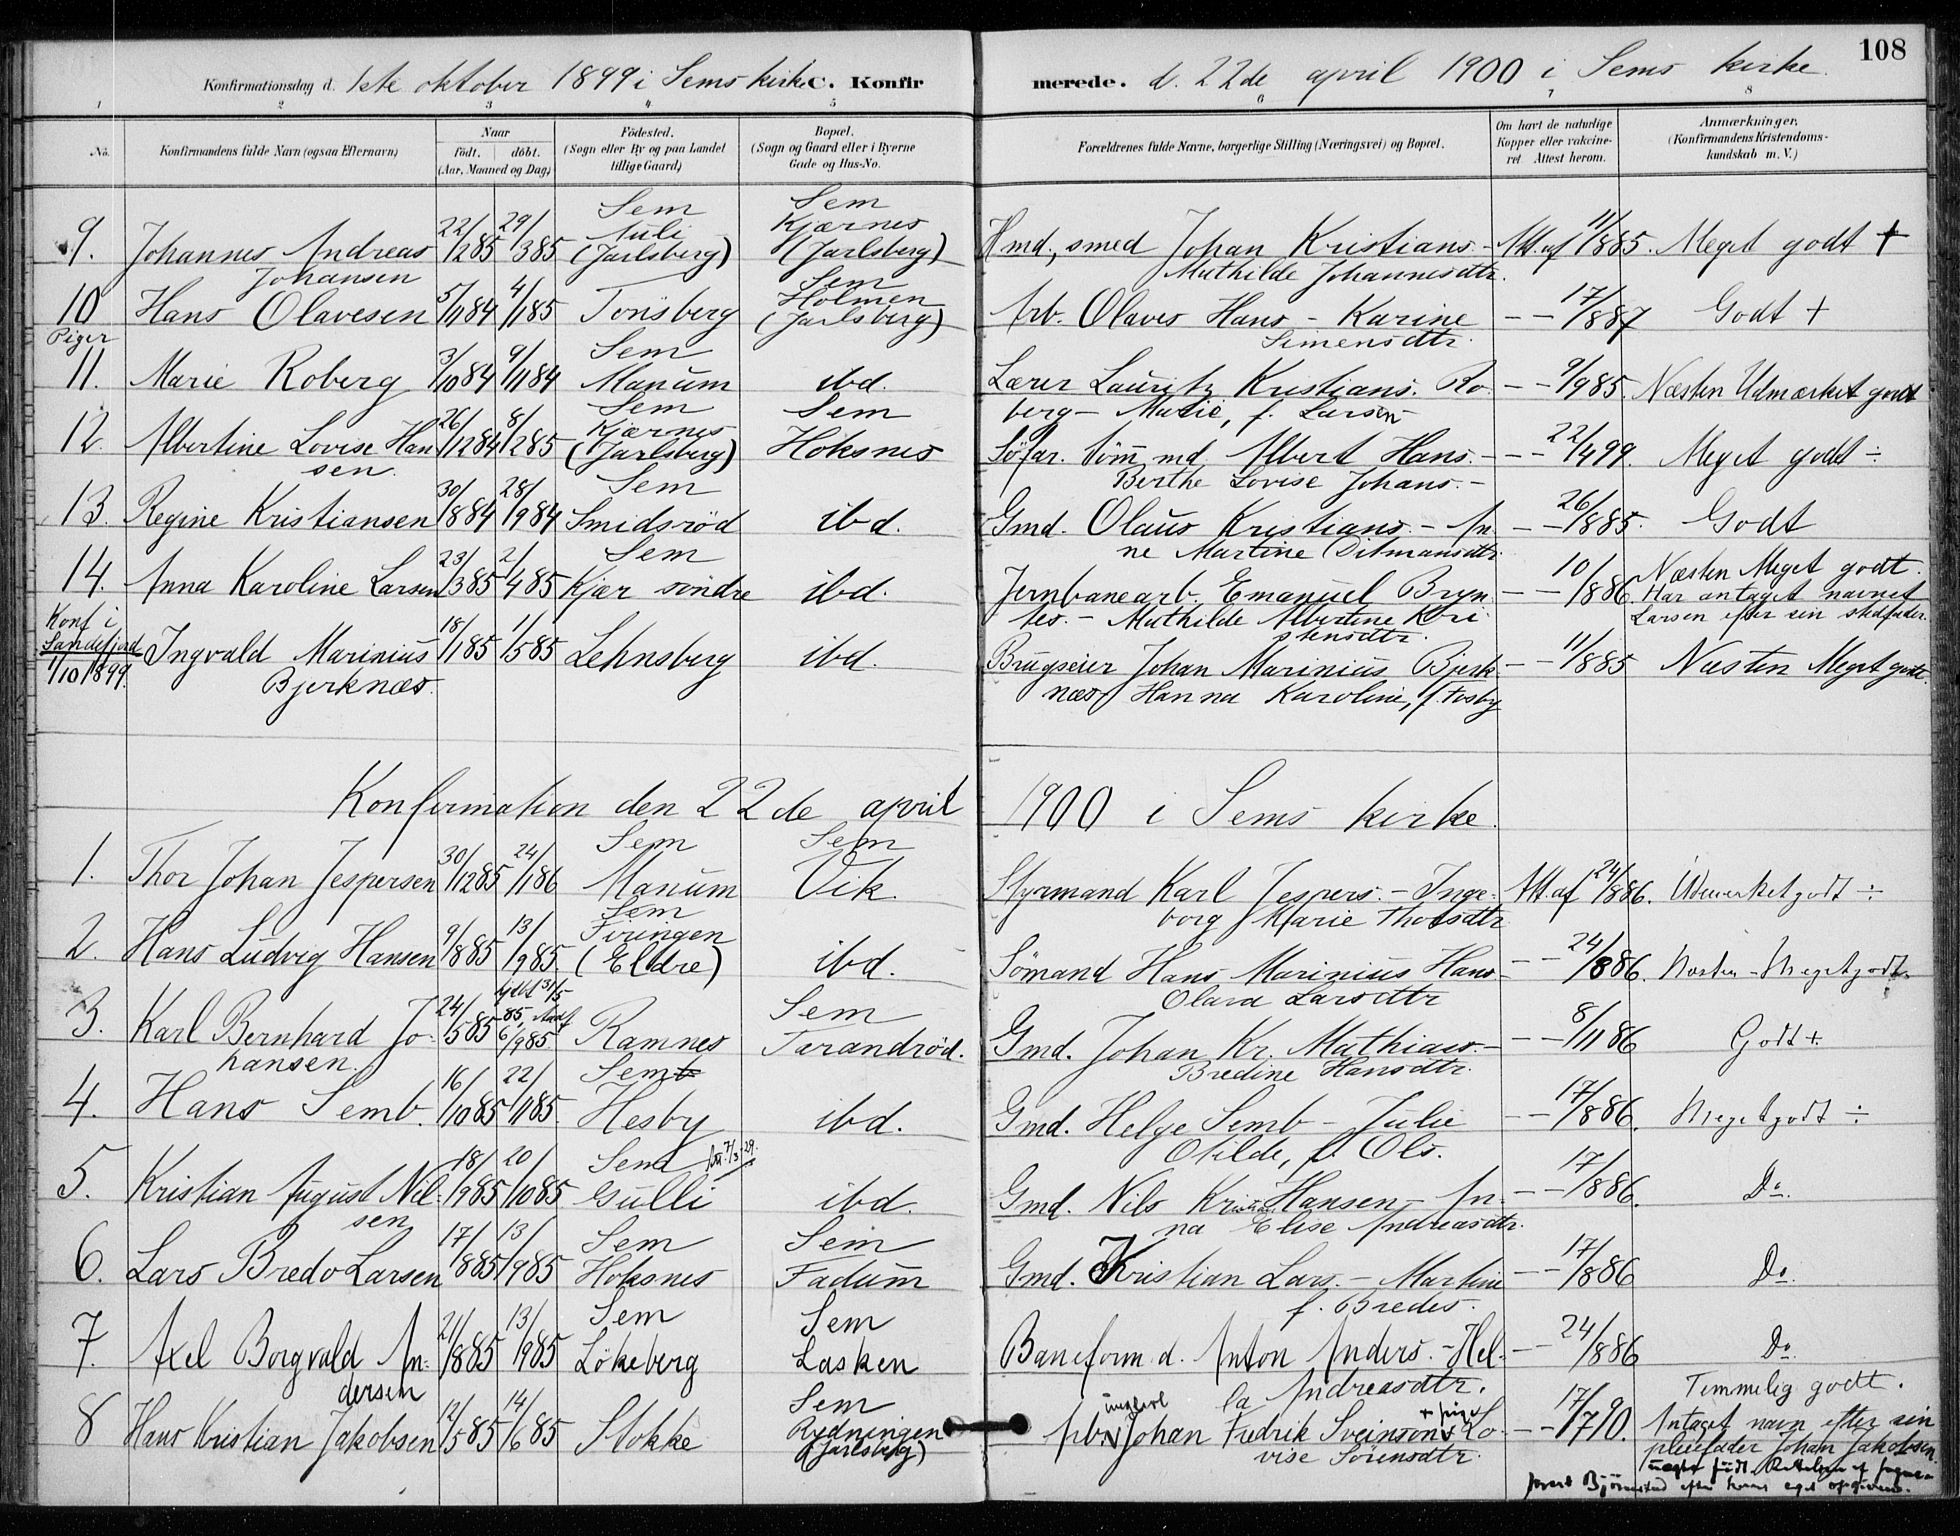 108
Konfirmationsdag d. 1ste oktober 1899 i Sems kirke C. Konfirmerede. d. 22de april 1900 i Sems kirke.
1 2 3 4 5 6 7 8
No. Konfirmandens fulde Navn (ogsaa Efternavn) Naar født. døbt. (Aar, Maaned og Dag) Födested. (Sogn eller By og paa Landet tillige Gaard) Bopæl. (Sogn og Gaard eller i Byerne Gade og Hus-No. Forældrenes fulde Navne, borgerlige Stilling (Næringsvei) og Bopæl. Om havt de naturlige Kopper eller vakcineret. Attest herom. Anmærkninger, (Konfirmandens Kristendomskundskab m. V.)
9. Johannes Andreas Johansen 22/285 29/385 Sem Auli (Jarlsberg) Sem Kjærnes (Jarlsberg) Hmd, smed Johan Kristians.- Mathilde Johannesdtr. Att. af 11/885. Meget godt +
10 Hans Olavesen 5/1184 4/185 Tønsberg Sem Holmen (Jarlsberg) Arb. Olaves Hans - Karine Simensdtr. - - 17/887 Godt +
Piger
11. Marie Roberg 3/1084 9/1184 Sem Manum ibd. Lærer Lauritz Kristians. Roberg - Marie, f. Larsen - - 9/985. Næsten Udmærket godt
12. Albertine Lovise Hansen. 26/1284 8/285 Sem Kjærnes (Jarlsberg) Sem Hoksnes Söfar. tömmd Albert Hans.- Berthe Lovise Johans.- - - 22/499. Meget godt ÷
13. Regine Kristiansen 30/884 28/984 Sem Smidsröd ibd. Gmd. Olaus Kristians. - Anne Martine Ditmansdtr. - - 26/885. Godt
14. Anna Karoline Larsen 23/385 2/485 Sem Kjær söndre ibd. Jernbanearb. Emanuel Bryntes. - Mathilde Albertine Kristensdtr. - - 10/886. Næsten Meget godt. Har antaget navnet Larsen efter sin stedfader.
Konf i Sandefjord 1/10 1899. Ingvald Marinius Bjerknæs. 18/185 1/585 Lehnsberg ibd. Brugseier Johan Marinius Bjerknæs Hanna Karoline, f. Fosby - - 11/885 Næsten Meget godt.
Konfirmation den 22de april 1900 i Sems kirke.
1. Thor Johan Jespersen 30/1285 24/186 Sem Manum Sem Vik. Styrmand Karl Jespers. - Ingeborg Marie Thorsdtr Att. af 24/886. Udmerket godt ÷
2. Hans Ludvig Hansen 9/885 13/985. Sem (Eldre) ibd. Sömand Hans Marinius Hans- Olava Larsdtr - - 24/886. Næsten - Meget godt.
3. Karl Bernhard Johansen. 24/585 85, 6/985 Ramnes Sem Tarandröd. Gmd. Johan Kr. Mathias.- Bredine Hansdtr. - - 8/1186 Godt +
4. Hans Semb. 16/1085 22/1185. Sem Hesby ibd. Gmd. Helge Semb - Julie Otilde, f. Ols. - - 17/886. Meget godt ÷
5. Kristian August Nilsen 18/985 20/1085 Sem Gulli ibd. Gmd. Nils Kristian Hansen - Anna Elise Andreasdtr. - - 17/886. Do.
6. Lars Bredo Larsen 17/885 13/985 Sem Hoksnes Sem Fadum Gmd. Kristian Lars. - Martine f. Bredes. - - 17/886 Do.
7. Axel Borgvald Andersen 21/885 13/985 Sem Lökeberg Sem Lasken Baneform d. Anton Anders. - Hella Andreasdtr. - - 24/886 Do.
8 Hans Kristian Jakobsen 12/585 14/685 Stokke Sem Rydningen (Jarlsberg) Arb. ungkarl Johan Fredrik Sveinsen + pige Lovise Sörensdtr. - - 17/790. Temmelig godt. Antaget navn efter sin pleiefader Johan Jakobsen.